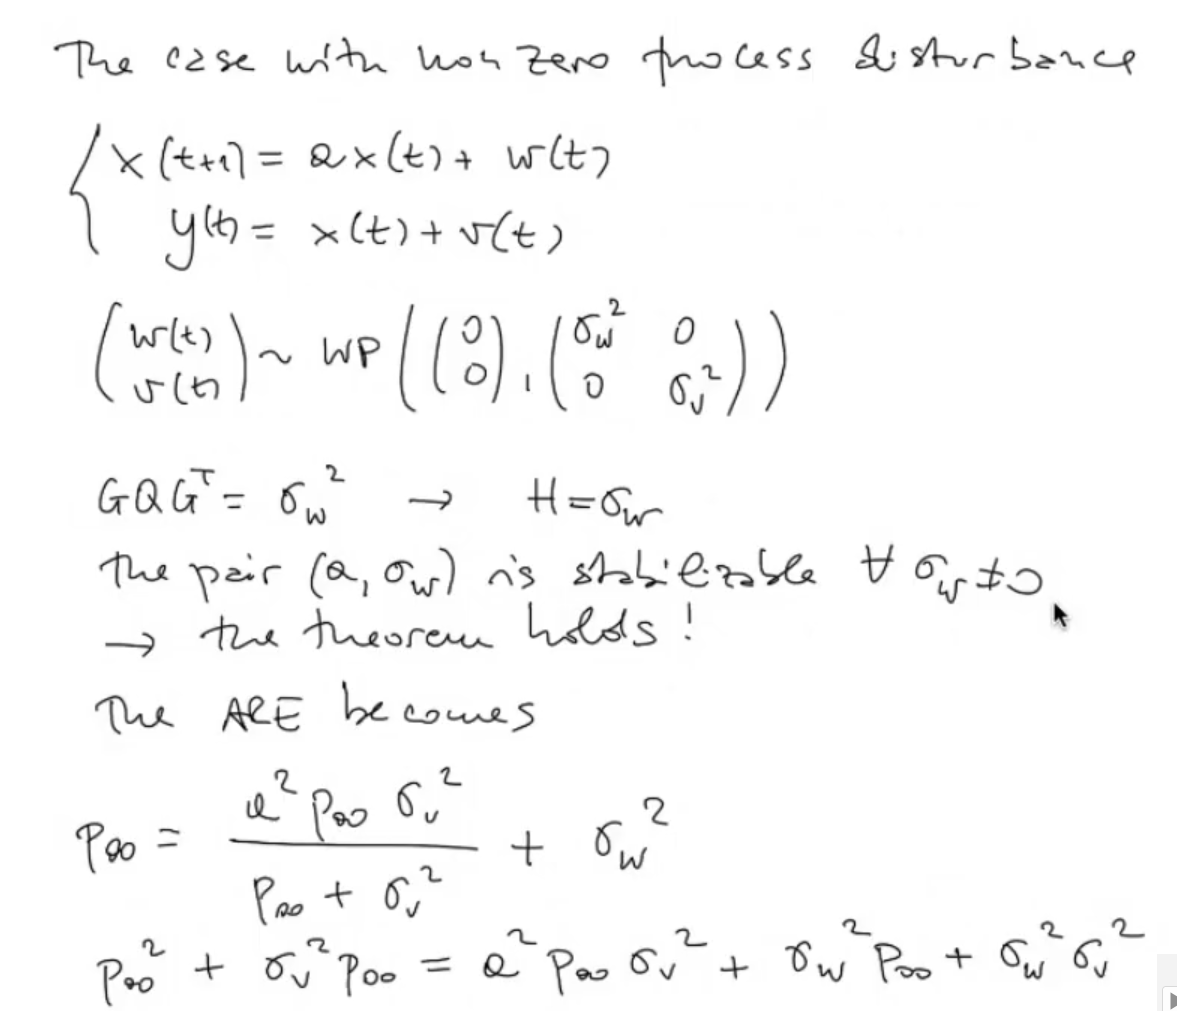 The case with non zero process disturbance
x(t+1) = ax(t) + w(t)
y(t) = x(t) + v(t)
(w(t) v(t)) ~ WP((0 0), (σw² 0 0 σv²))
GQGᵀ = σw² → H = σw
the pair (a, σw) is stabilizable ∀ σw ≠ 0
→ the theorem holds!
The ARE becomes
p∞ = a² p∞ σv² / (p∞ + σv²) + σw²
p∞² + σv² p∞ = a² p∞ σv² + σw² p∞ + σw² σv²